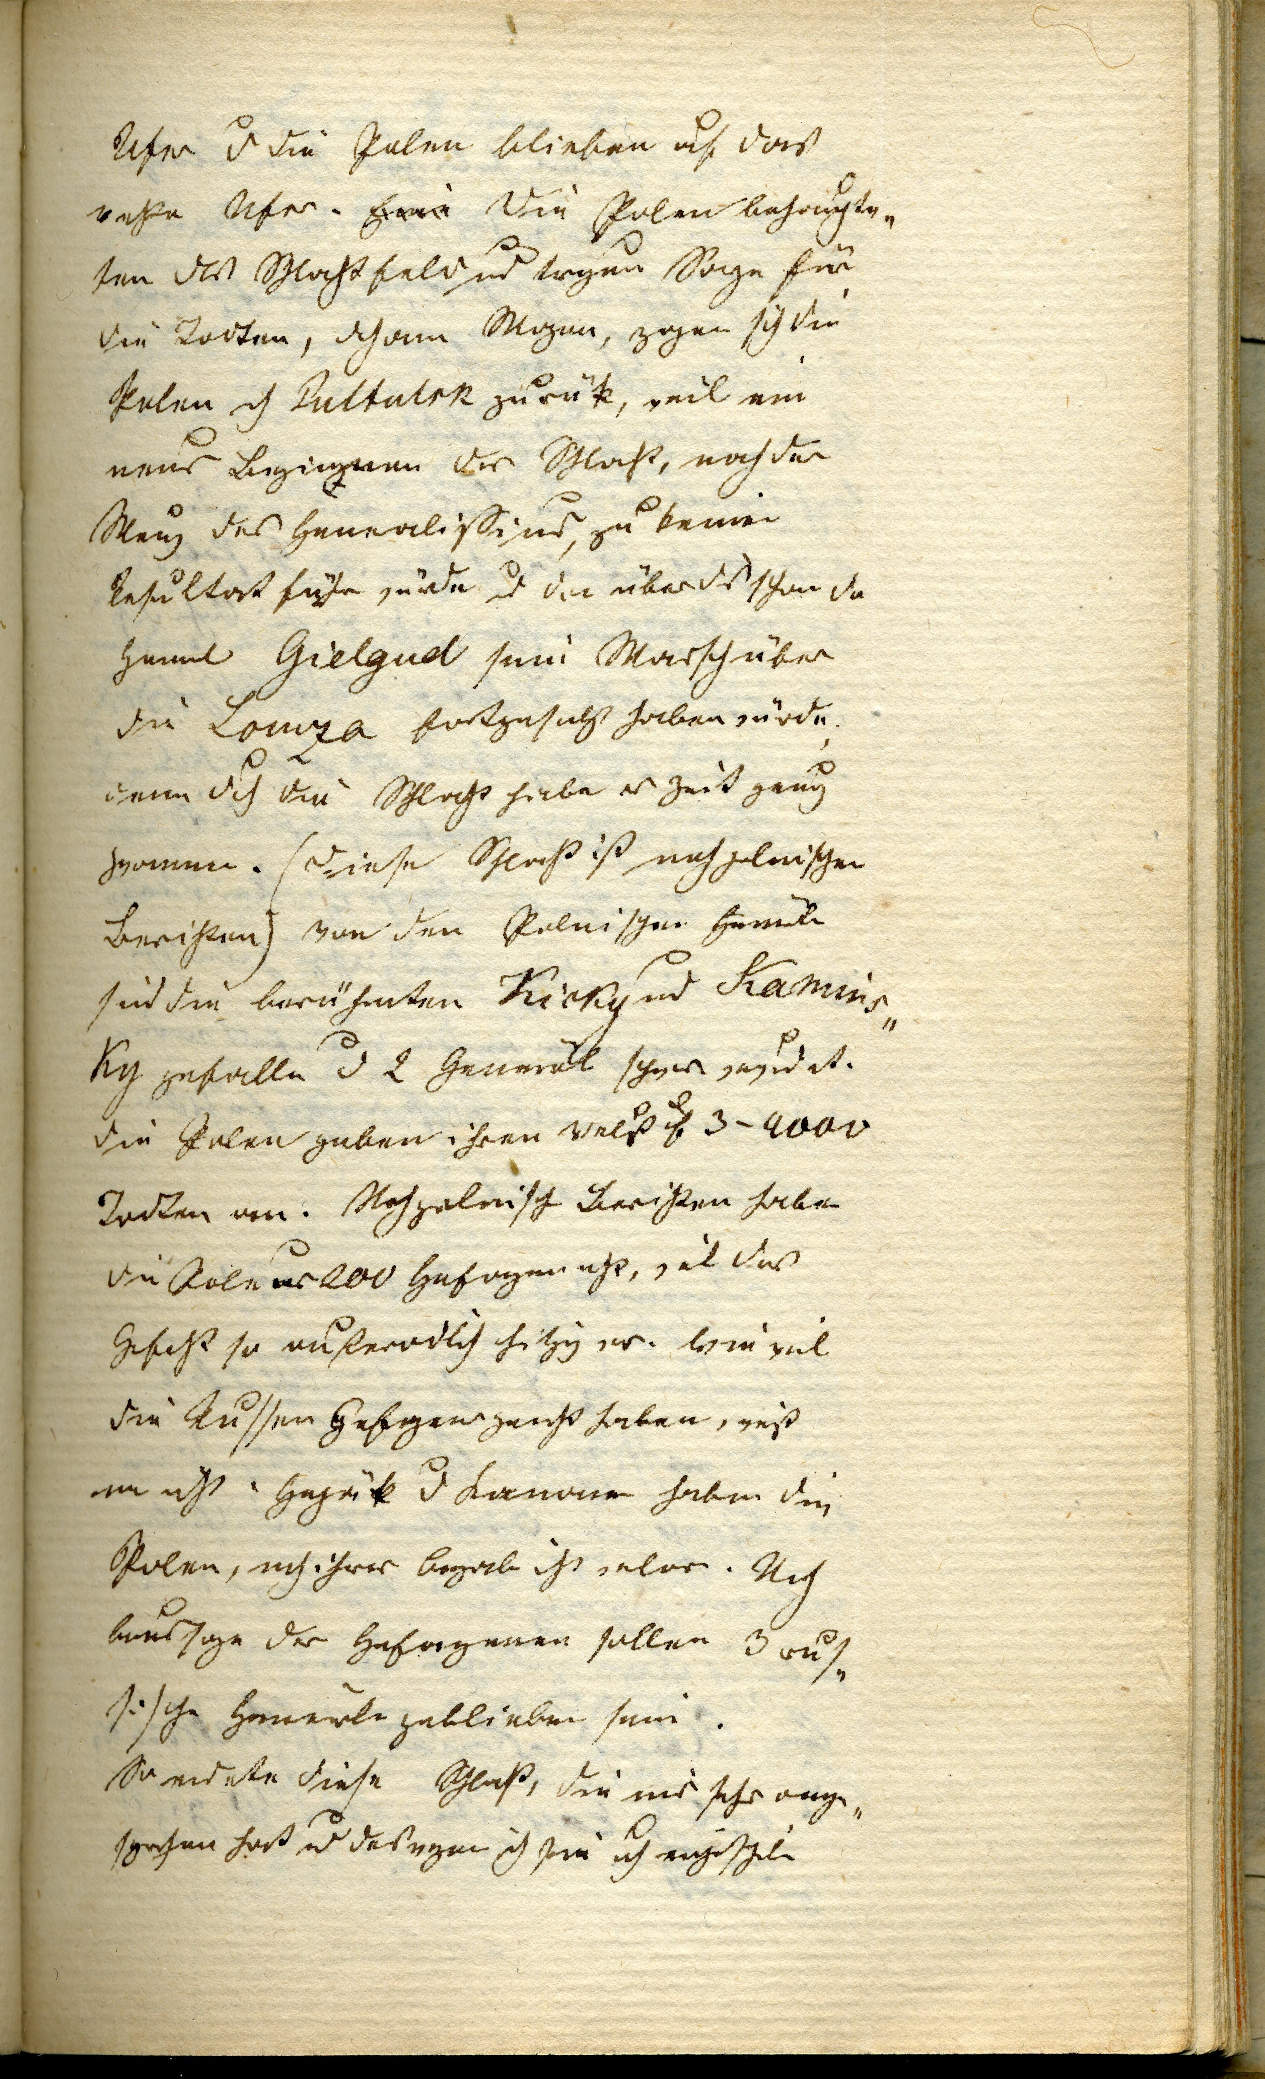 Ufer u die Polen blieben auf das
rechte Ufer. Die Polen behaupte„
ten das Schlachtfeld und trugen Sorge für
die Todten, Morgen, zogen sich die
Polen nach Pultulsk zurük, weil ein
neues Beginnen der Schlacht, nach der
Meinung des Generalissimus, zu keinem
Resultat führen würde u der überdies schon der
General Gielgud seinen Marsch über
die Lomza fortgesetzt haben würde,
denn durch die Schlacht habe er Zeit genug
gewonnen. (Diese Schlacht ist nach polnischen
Berichten) von den Polnischen Generäle
sind die berühmten Kicky und Kamins„
ky gefallen u 2 Generäle schwer verwundet.
Die Polen geben ihren Verlust auf 3-4000
Todten an. Nach polnisch Berichten haben
die Polen nur 200 Gefangen , weil das
Gefecht so außerordtlich hitzig war. Wie viel
die Russen Gefangene gemacht haben, weiß
man nicht. Gepäk u Kanonen haben die
Polen, nach ihrer Angabe nicht verlor. Nach
Aussage der Gefangenen sollen 3 rus„
sische Generäle geblieben sein.
So endete diese Schlacht, die mir sehr ange„
sprochen hat u deswegen ich sie auch